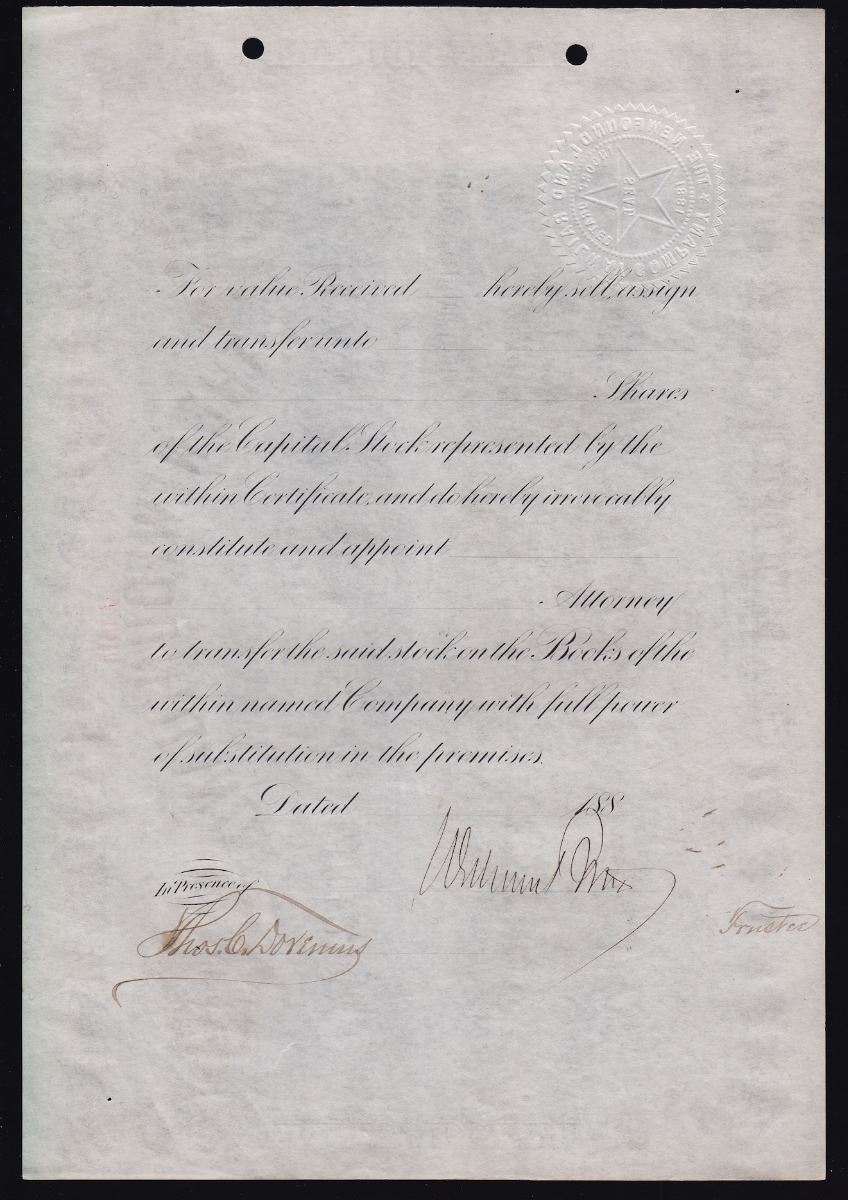 THE NEWFOUNDLAND RAILWAY COMPANY
INCORPORATED
SEAL
1881
For value Received hereby sell, assign
and transfer unto
Shares
of the Capital Stock represented by the
within Certificate, and do hereby irrevocably
constitute and appoint
Attorney
to transfer the said stock on the Books of the
within named Company with full power
of substitution in the premises.
Dated 188
In Presence of
Thos. C.
Trustee